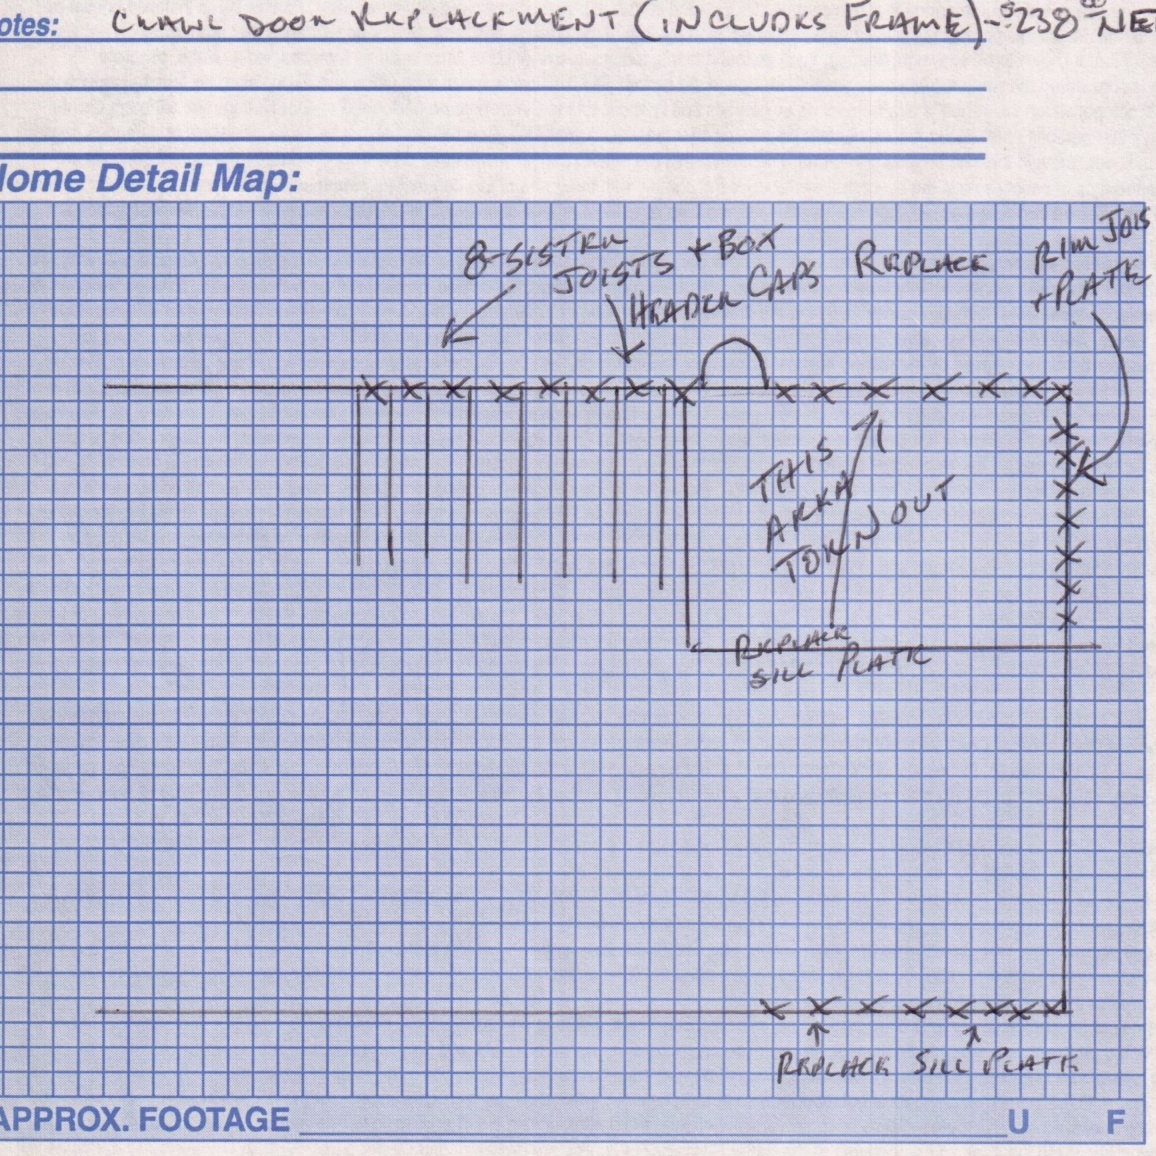 otes: CRAWL DOOR REPLACEMENT (INCLUDES FRAME) - $238⁰⁰ NE
ome Detail Map:
8-SISTER JOISTS + BOX
HEADER CAPS
REPLACE RIM JOIS
+ PLATE
THIS
AREA
TORN OUT
REPLACE
SILL PLATE
REPLACE SILL PLATE
APPROX. FOOTAGE U F